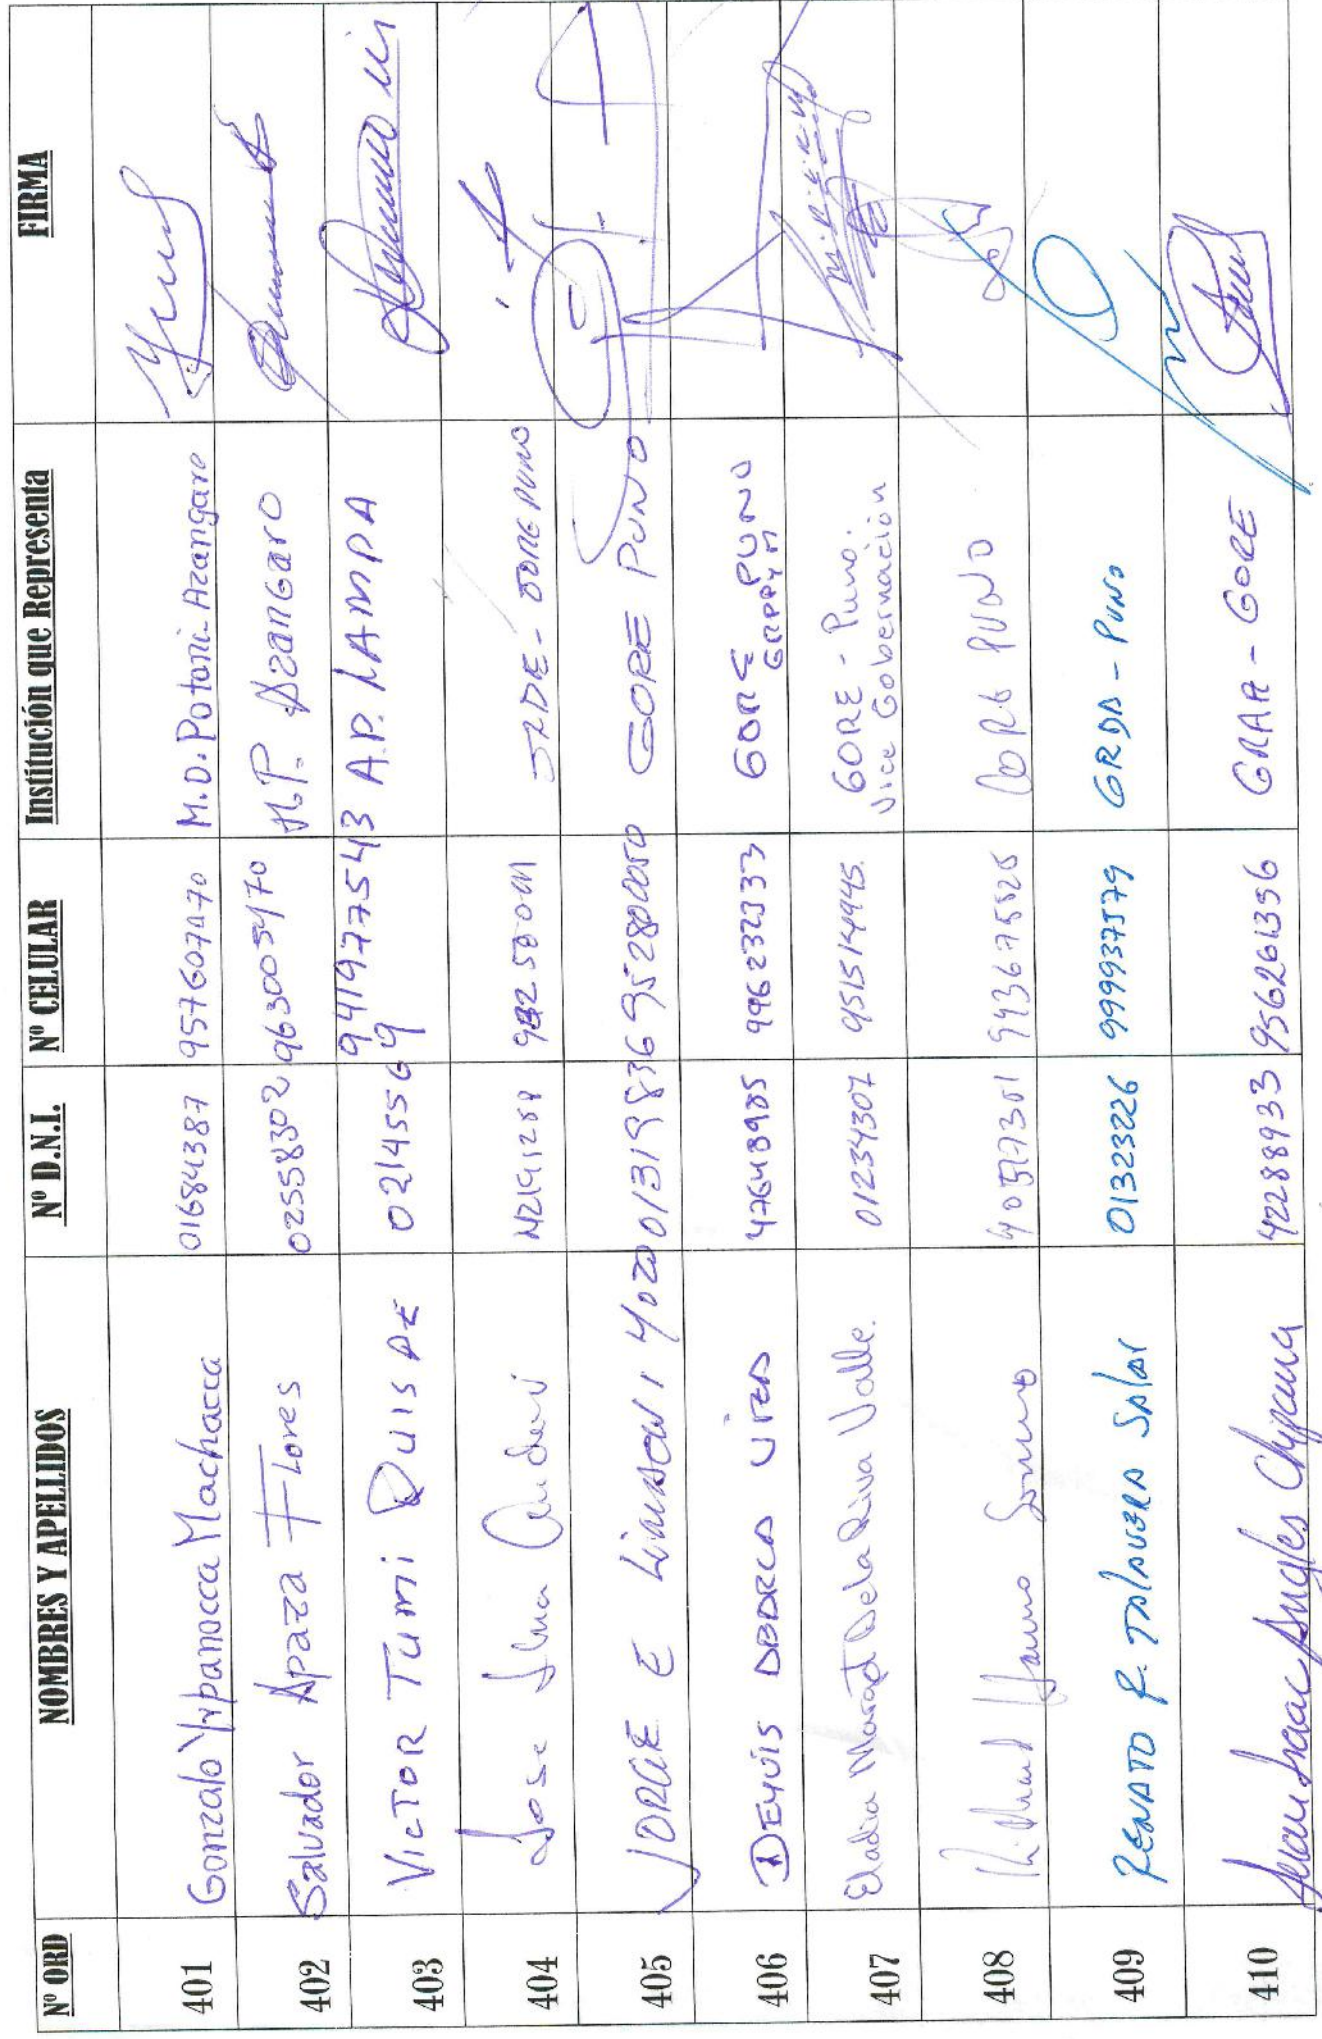 Nº ORD NOMBRES Y APELLIDOS Nº D.N.I. Nº CELULAR Institución que Representa FIRMA
401 Gonzalo Yupanocca Machacca 01684387 957607470 M.D. Potoni-Azangaro
402 Salvador Apaza Flores 02558302 963005470 M.P. AzanGaro
403 VICTOR TUMI QUISPE 02145569 941977543 A.P. LAMPA
404 Jose GORE PUNO
405 JORGE E 01319836 952800050 GORE PUNO
406 DEYVIS ABARCA 47648985 996232333 GORE PUNO
GRPPYM
407 Eladia De la Riva Valle. 01234307 951514945. GORE - Puno.
Vice Gobernación
408 943675525 GORE PUNO
409 RENATO R. TALAVERA SALAS 01323226 999937579 GRDA - PUNO
410 Juan Isaac Angles Chipana 42288933 956261356 GRAA - GORE